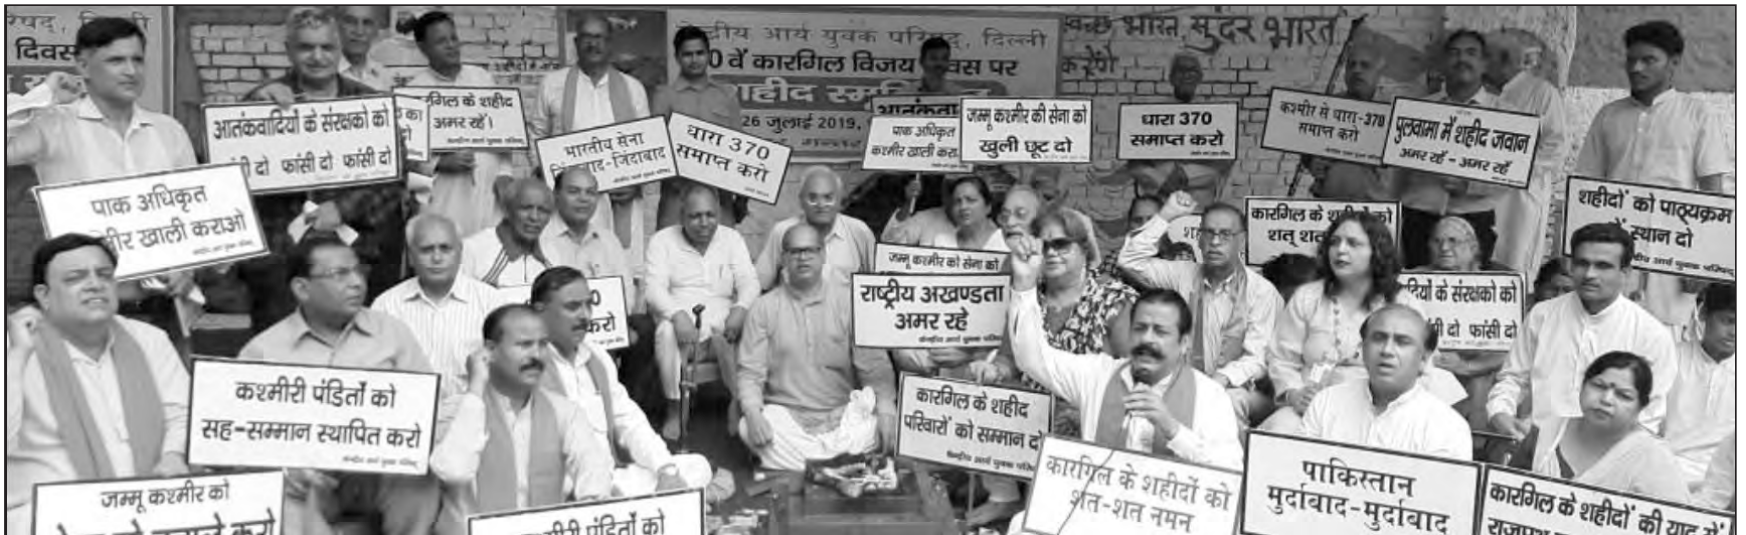 दिवस
केन्द्रीय आर्य युवक परिषद्, दिल्ली
वें कारगिल विजय दिवस पर
26 जुलाई 2019,
स्वच्छ भारत, सुंदर भारत
करेंगे
आतंकवादियों के संरक्षको को
फांसी दो फांसी दो
कारगिल के शहीद
अमर रहें।
भारतीय सेना
जिंदाबाद-जिंदाबाद
धारा 370
समाप्त करो
पाक अधिकृत
कश्मीर खाली करा
जम्मू कश्मीर की सेना को
खुली छूट दो
धारा 370
समाप्त करो
कश्मीर से धारा-370
समाप्त करो
पुलवामा में शहीद जवान
अमर रहें - अमर रहें
शहीदों को पाठ्यक्रम
में स्थान दो
केन्द्रीय आर्य युवक परिषद्
पाक अधिकृत
कश्मीर खाली कराओ
कारगिल के शहीदों को
शत् शत्
जम्मू कश्मीर को सेना को
राष्ट्रीय अखण्डता
अमर रहे
केन्द्रीय आर्य युवक परिषद्
के संरक्षको को
दो फांसी दो
करो
कश्मीरी पंडितों को
सह-सम्मान स्थापित करो
केन्द्रीय आर्य युवक परिषद्
कारगिल के शहीद
परिवारों को सम्मान दो
केन्द्रीय आर्य युवक परिषद्
कारगिल के शहीदों को
शत-शत नमन
पाकिस्तान
मुर्दाबाद-मुर्दाबाद
कारगिल के शहीदों की याद में
जम्मू कश्मीर को
पंडितों को